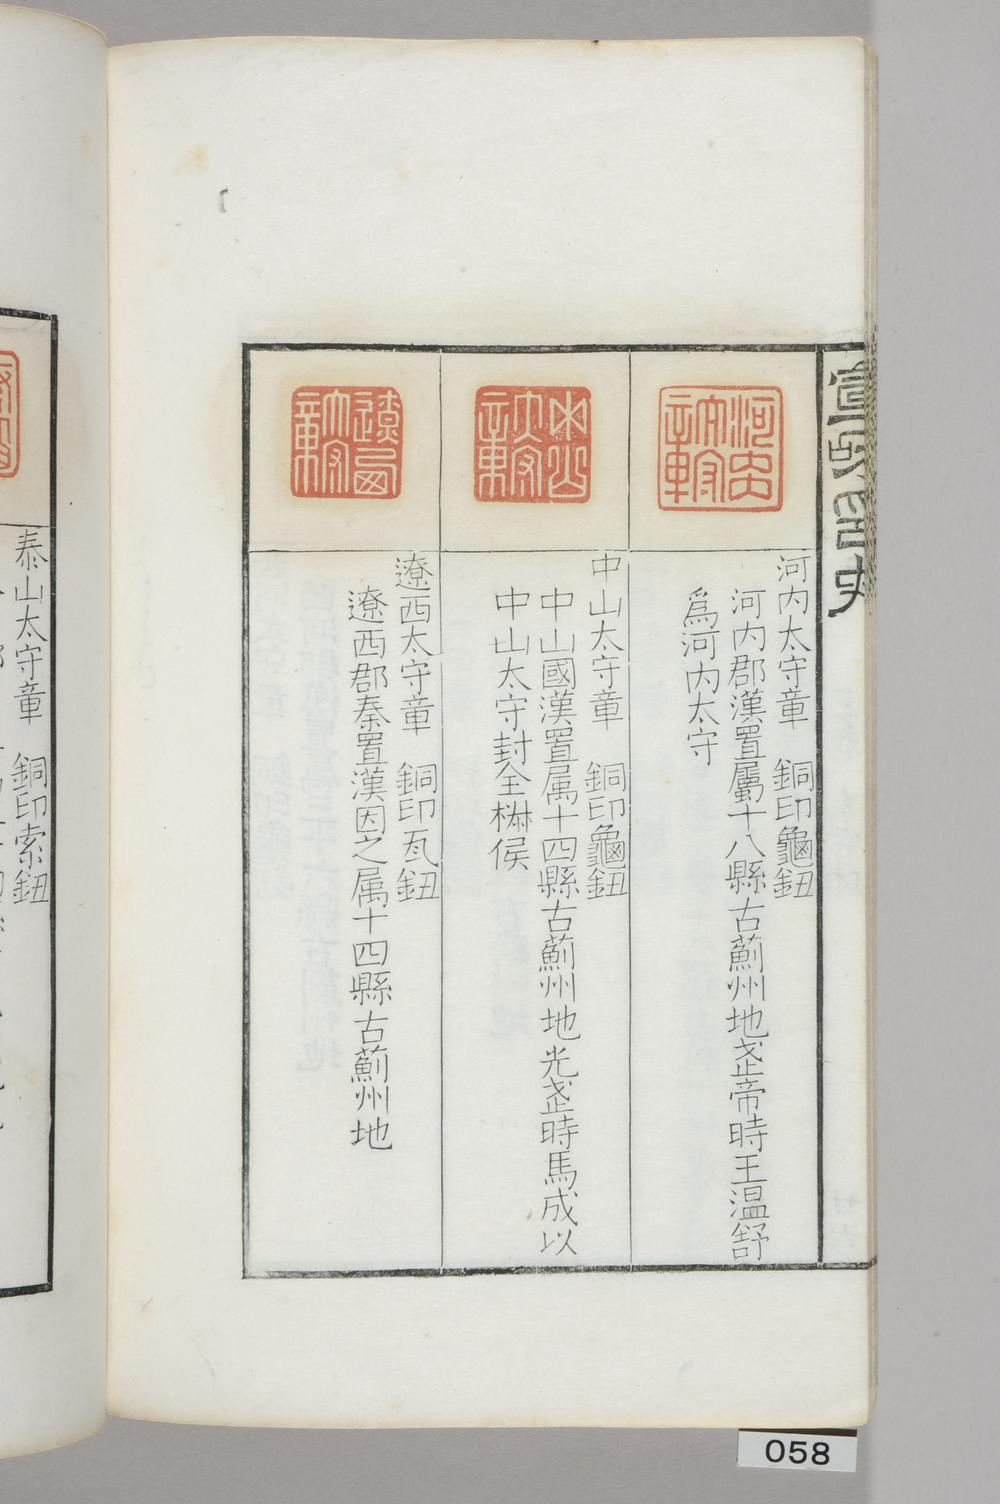 宣和印史
河内太守章
河内太守章　銅印龜鈕
河内郡漢置屬十八縣古薊州地武帝時王温舒
爲河内太守
中山太守章
中山太守章　銅印龜鈕
中山國漢置属十四縣古薊州地光武時馬成以
中山太守封全椒侯
遼西太守章
遼西太守章　銅印瓦鈕
遼西郡秦置漢因之属十四縣古薊州地
泰山太守章　銅印索鈕
058